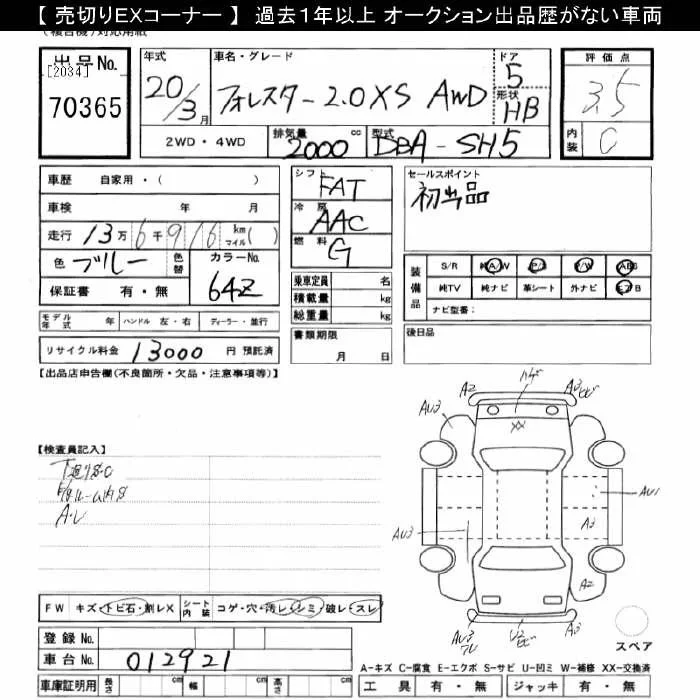 【 売切りEXコーナー 】 過去1年以上 オークション出品歴がない車両
出品No. 年式 車名・グレード ドア 形状 評価点
[2034]
70365 20/3月 フォレスター2.0XS AWD 5 HB 3.5
2WD・4WD 排気量 2000 cc 型式 DBA-SH5 内装 C
車歴 自家用・( )
シフト FAT
セールスポイント
初出品
車検 年 月
冷房 AAC
走行 13万6千916 km マイル( )
燃料 G
色 ブルー 色替 カラーNo. 64Z
保証書 有・無
乗車定員 名
積載量 kg
総重量 kg
装備品 S/R 純A/W P/S P/W ABS
純TV 純ナビ 革シート 外ナビ エアB
ナビ型番:
モデル年式 年 ハンドル 左・右 ディーラー・並行
書類期限 月 日
後日品
リサイクル料金 13000 円 預託済
【出品店申告欄(不良箇所・欠品・注意事項等)】
A2 ハゲ A3 ヒビ
AU3 XX
【検査員記入】
AU1
AU3 A3
A2
AU3 A3
FW キズ・トビ石・割レX シート内装 コゲ・穴・汚レ・シミ・破レ・スレ
スペア
登録No.
車台No. 012921
A-キズ C-腐食 E-エクボ S-サビ U-凹ミ W-補修 XX-交換済
車庫証明用 長さ cm 幅 cm 高さ cm 工具 有・無 ジャッキ 有・無